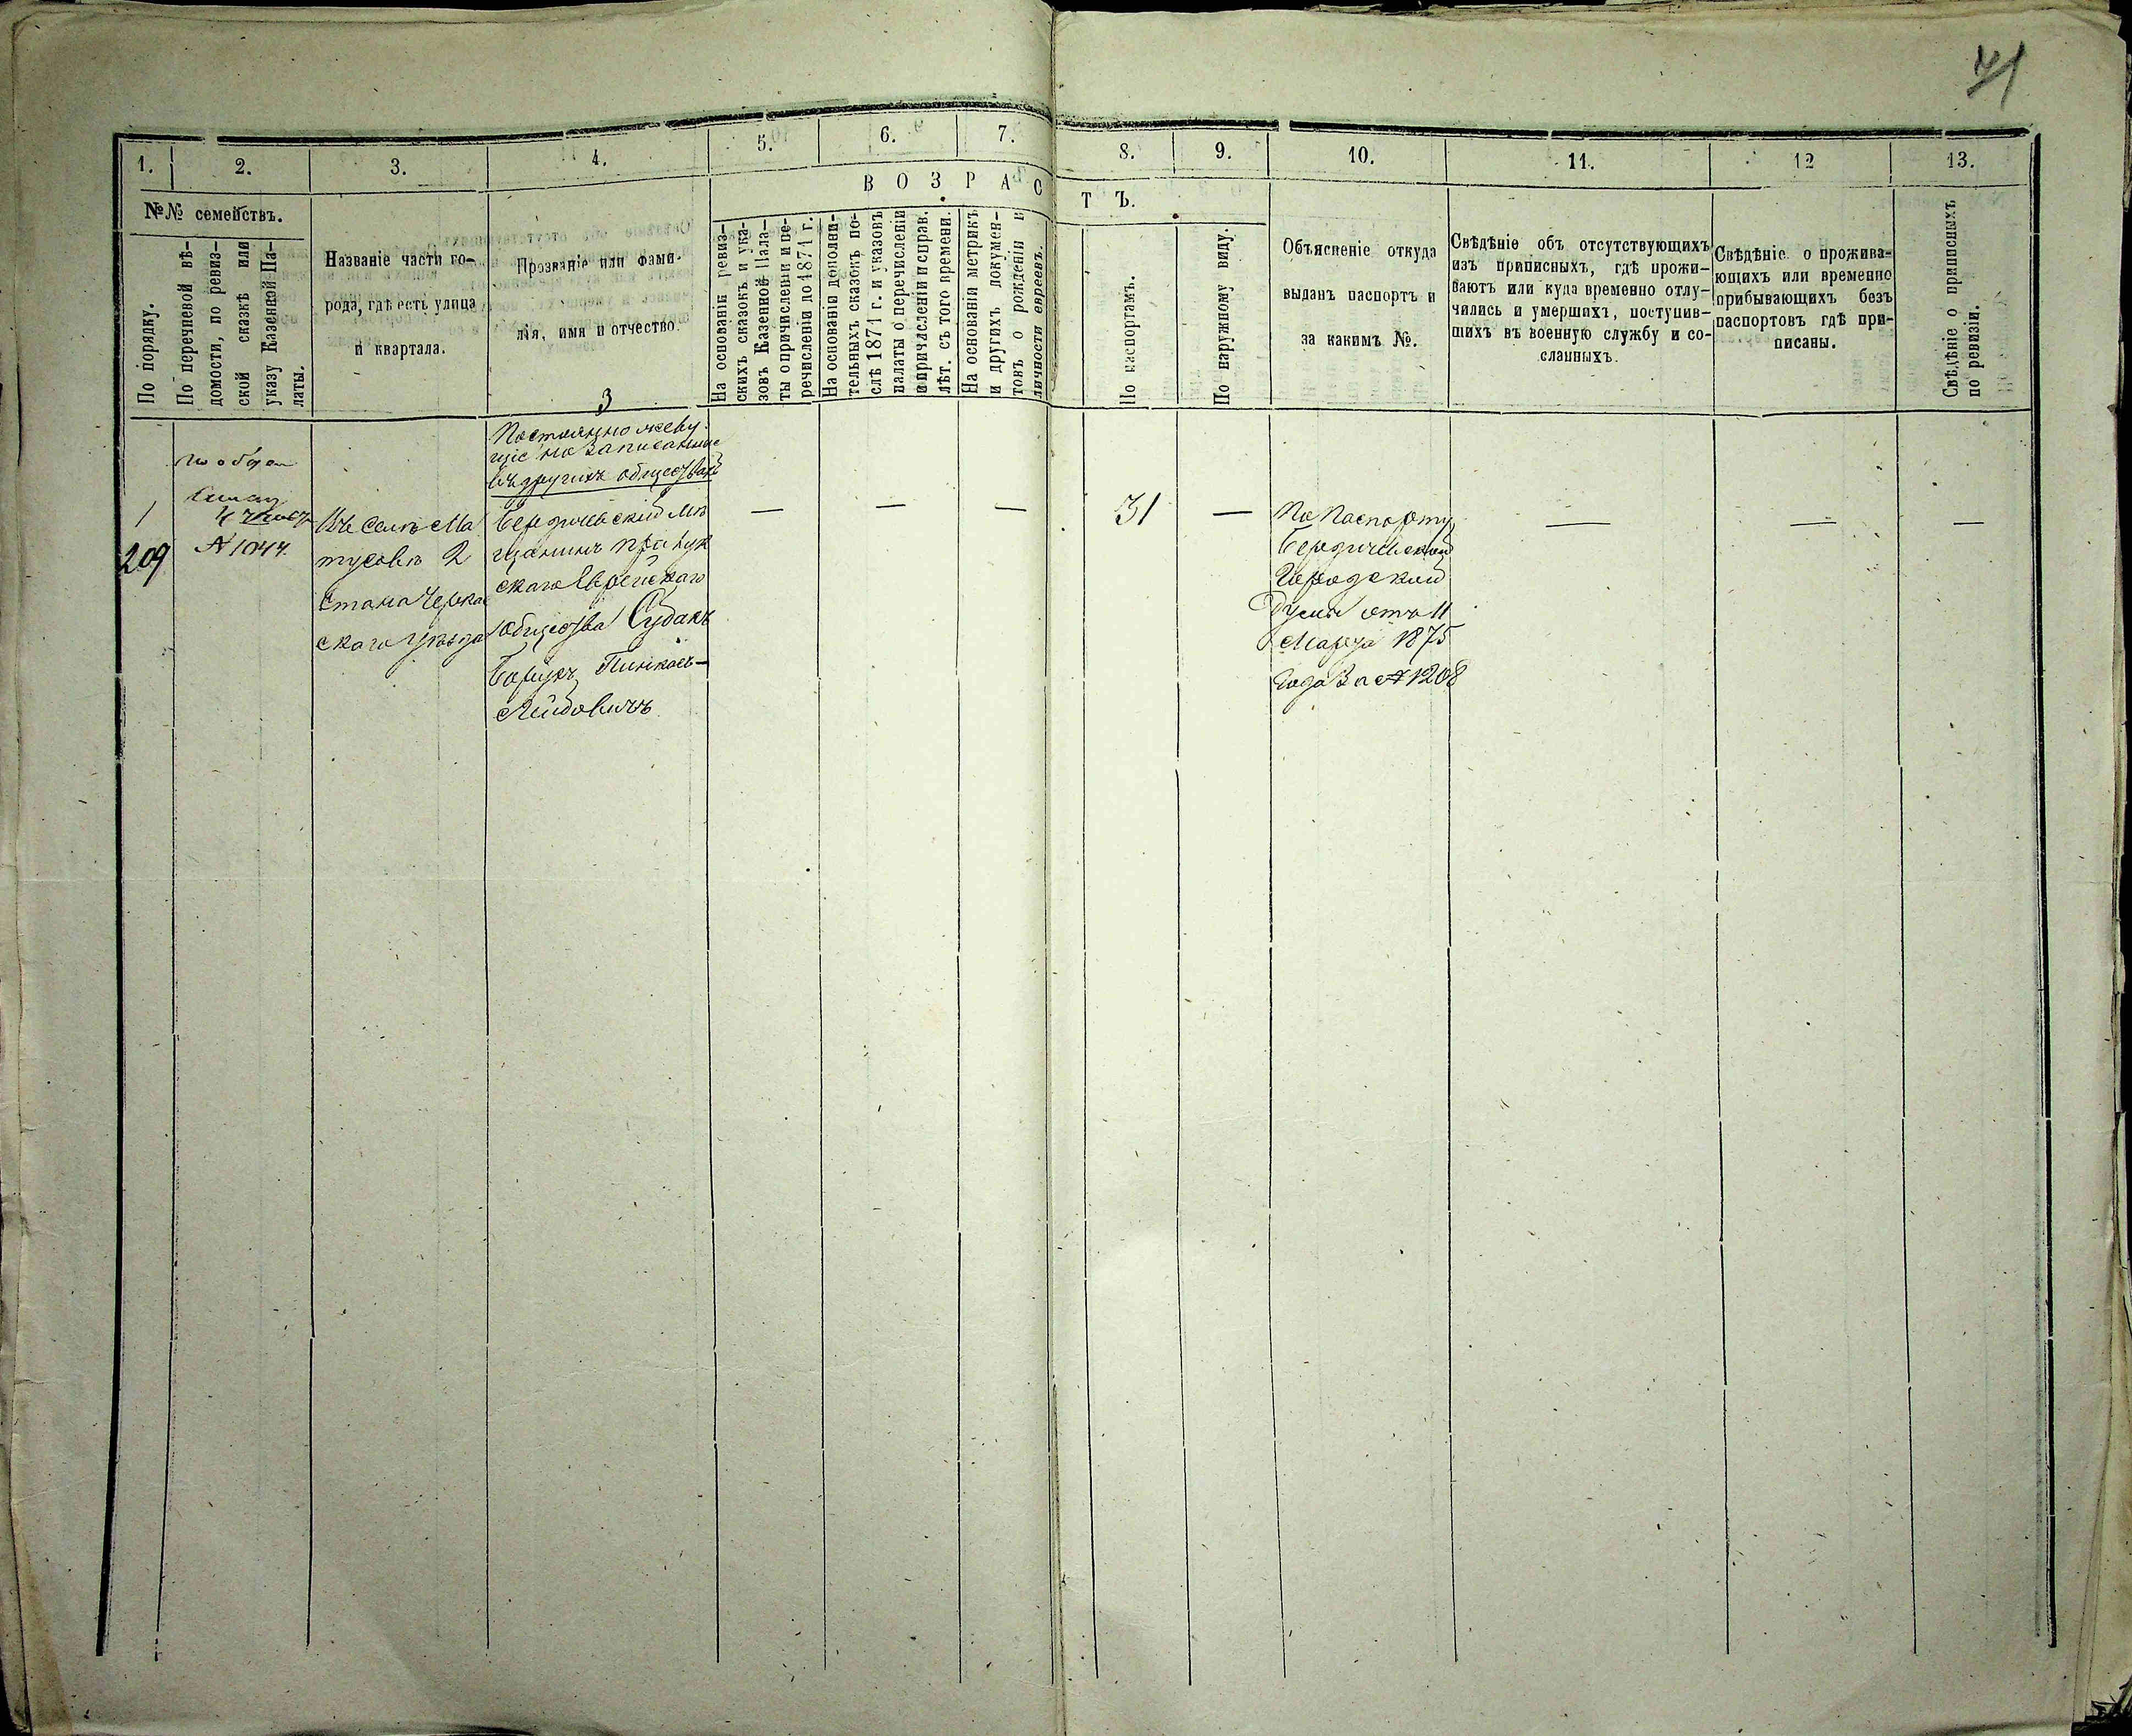 41
1.
2.
3.
4.
5.
6.
7.
8.
9.
10.
11.
12
13.
№№ семействъ.
В О З Р А С Т Ъ.
По порядку.
По перечневой вѣ-
домости, по ревиз-
ской сказкѣ или
указу Казенной Па-
латы.
Названіе части го-
рода, гдѣ есть улица
и квартала.
Прозваніе или фами-
лія, имя и отчество.
На основаніи ревиз-
скихъ сказокъ и ука-
зовъ Казенной Пала-
ты о причисленіи и пе-
речисленіи по 1871 г.
На основаніи дополни-
тельныхъ сказокъ по-
слѣ 1871 г. и указовъ
палаты о перечисленіи
и причисленіи и справ.
лѣт. съ того времени.
На основаніи метрикъ
и другихъ докумен-
товъ о рожденіи и
личности евреевъ.
По паспортамъ.
По наружному виду.
Объясненіе откуда
выданъ паспортъ и
за какимъ №.
Свѣдѣніе объ отсутствующихъ
изъ приписныхъ, гдѣ прожи-
ваютъ или куда временно отлу-
чились и умершихъ, поступив-
шихъ въ военную службу и со-
сланныхъ.
Свѣдѣніе о прожива-
ющихъ или временно
прибывающихъ безъ
паспортовъ гдѣ при-
писаны.
Свѣдѣніе о приписныхъ
по ревизіи.
3
Постоянно живу-
щіе но записанные
въ другихъ обществахъ
1
209
№ 1044.
Въ селѣ Ма
тусовѣ 2
Стана Черка
скаго уѣзда
Бердичевскій мѣ
щанинъ
скаго Еврейскаго
общества Судакъ
Борухъ Пинкасъ-
Лейбовичъ
—
—
—
31
—
По паспорту
Бердичевской
Городской
Думы отъ 11
Марта 1875
года За № 1208
—
—
—